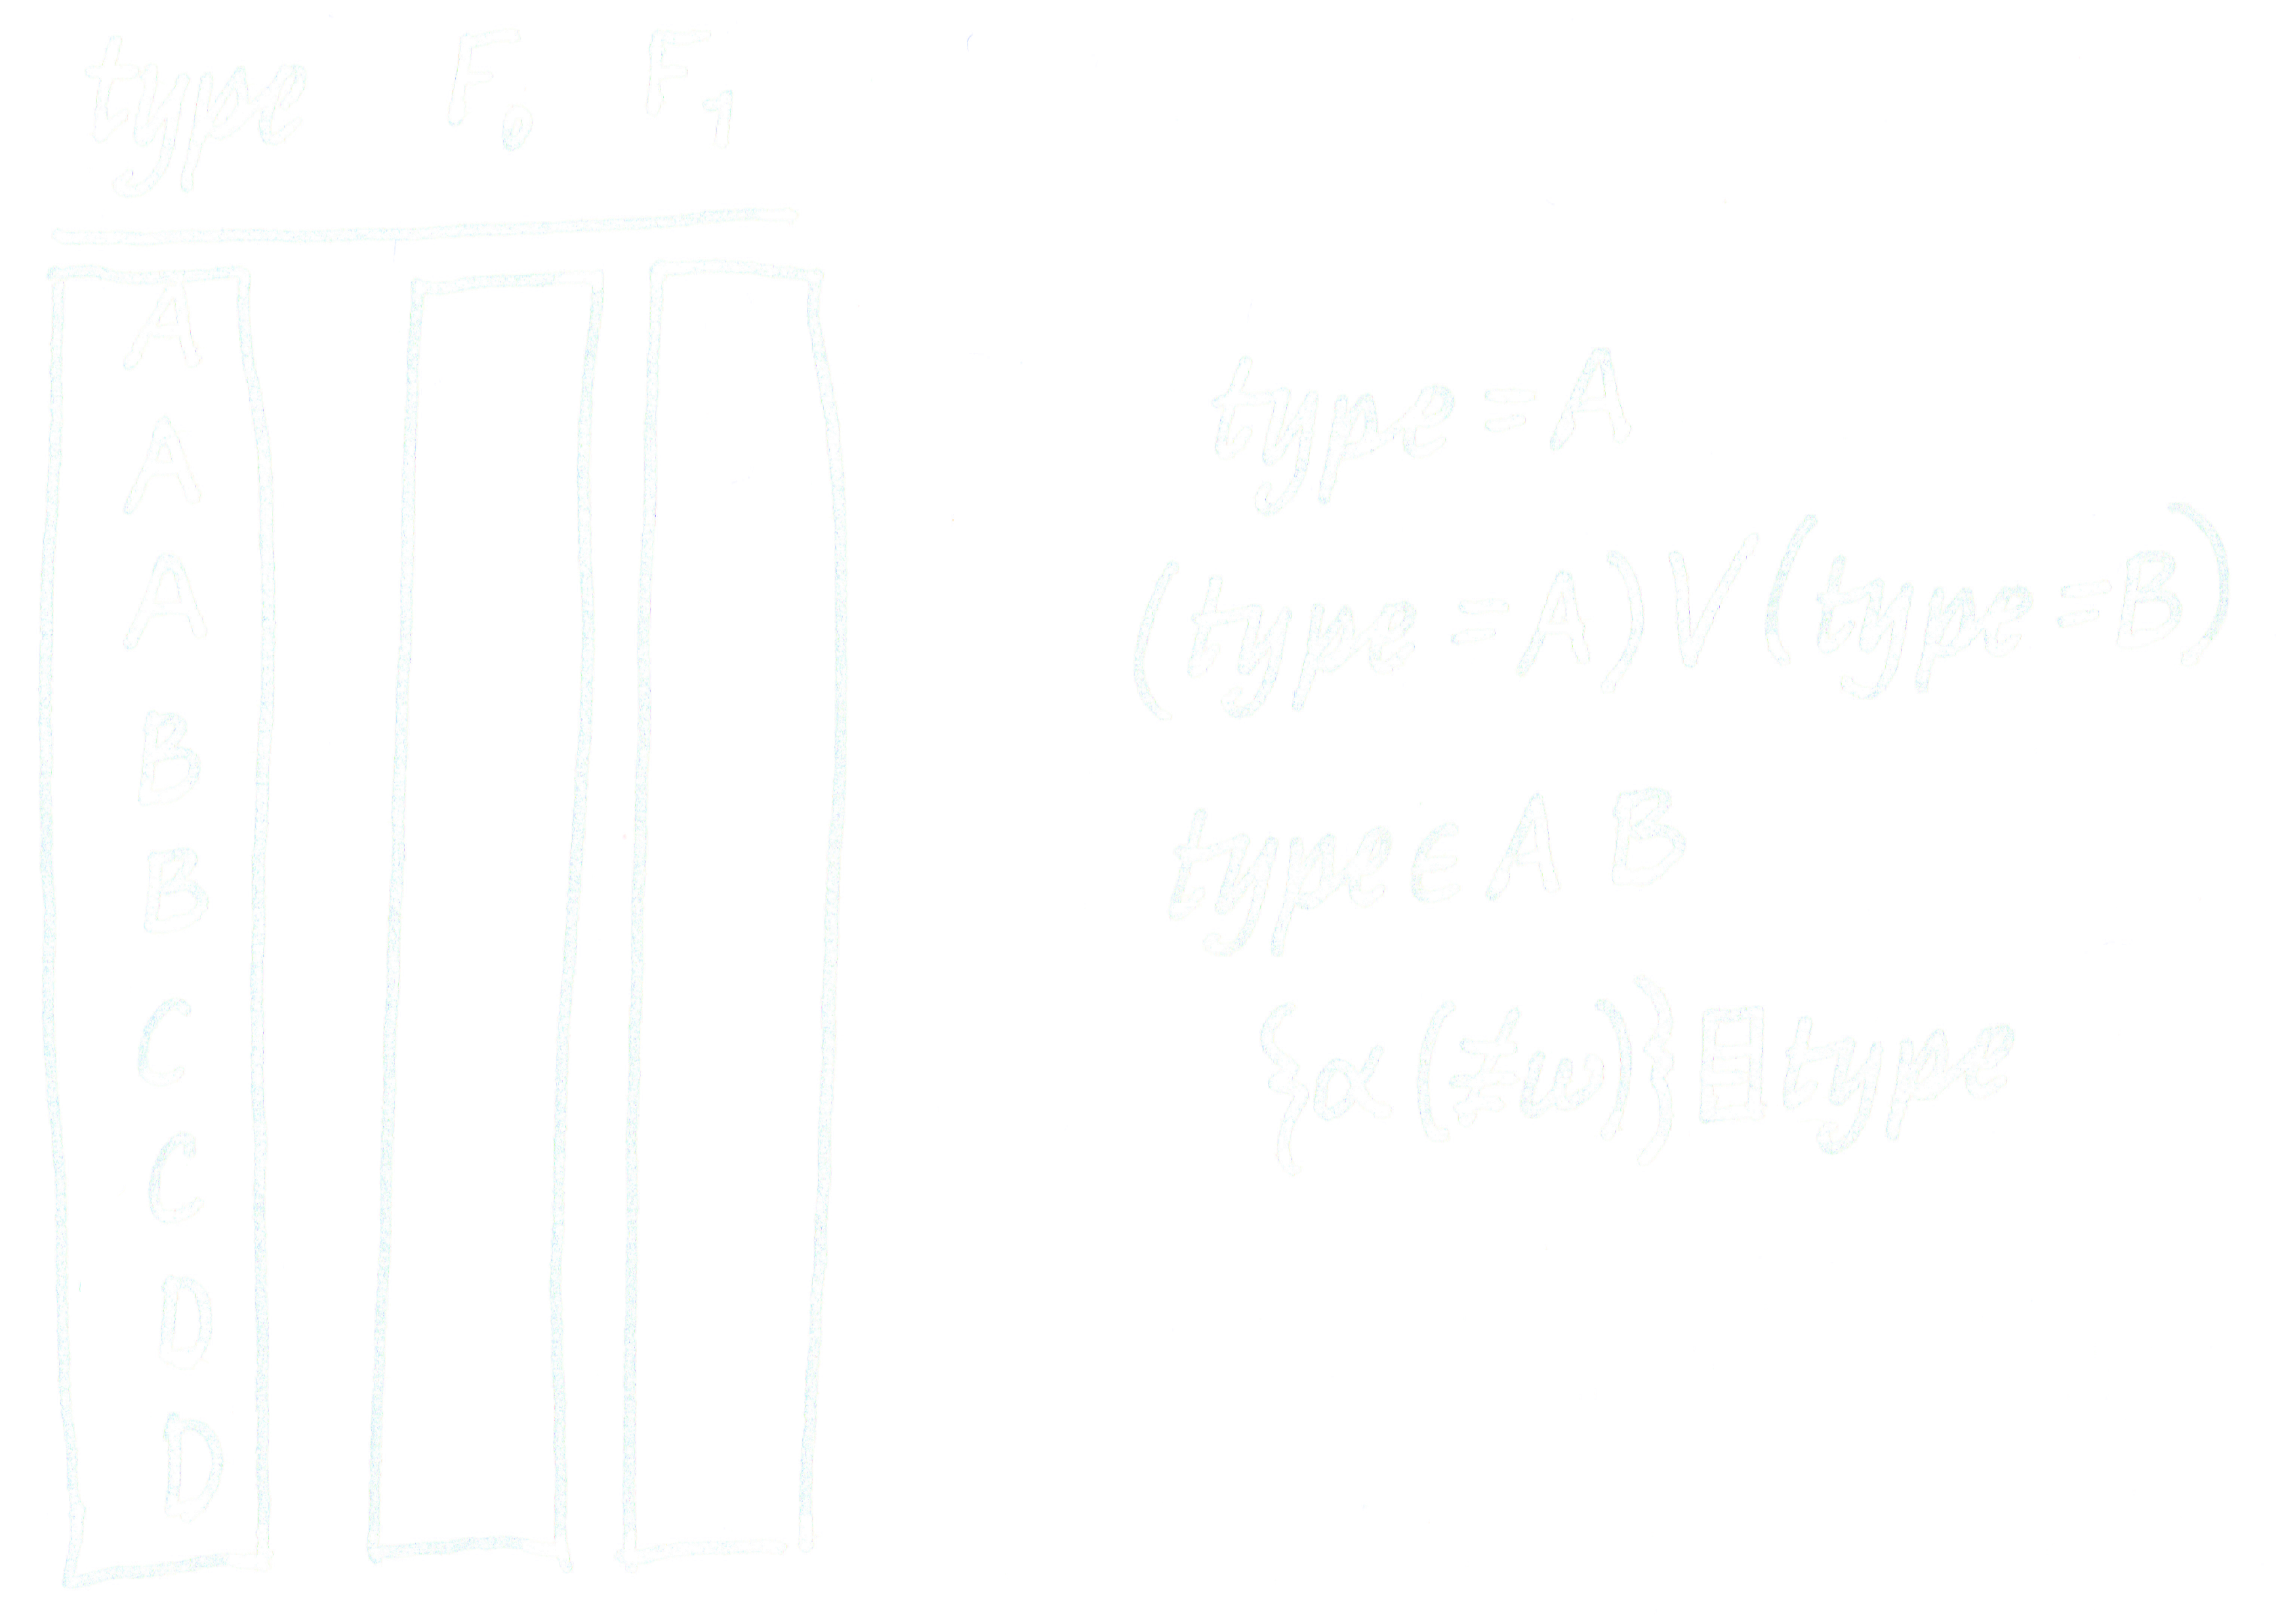 type F₀ F₁
A
A
A
B
B
C
C
D
D
type=A
(type=A)∨(type=B)
type∈A B
{⍺(≢⍵)}⌸type